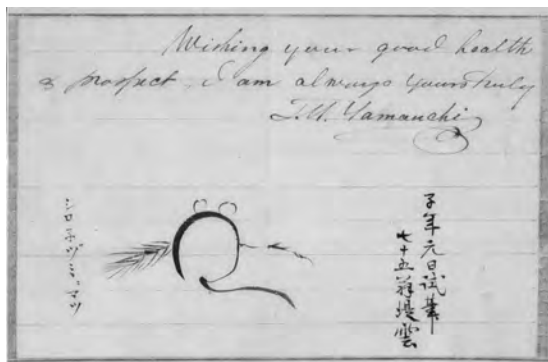 Wishing your good health
& prospect, I am always yours truly
T.U. Yamauchi
子年元日試筆
七十五翁堤雲